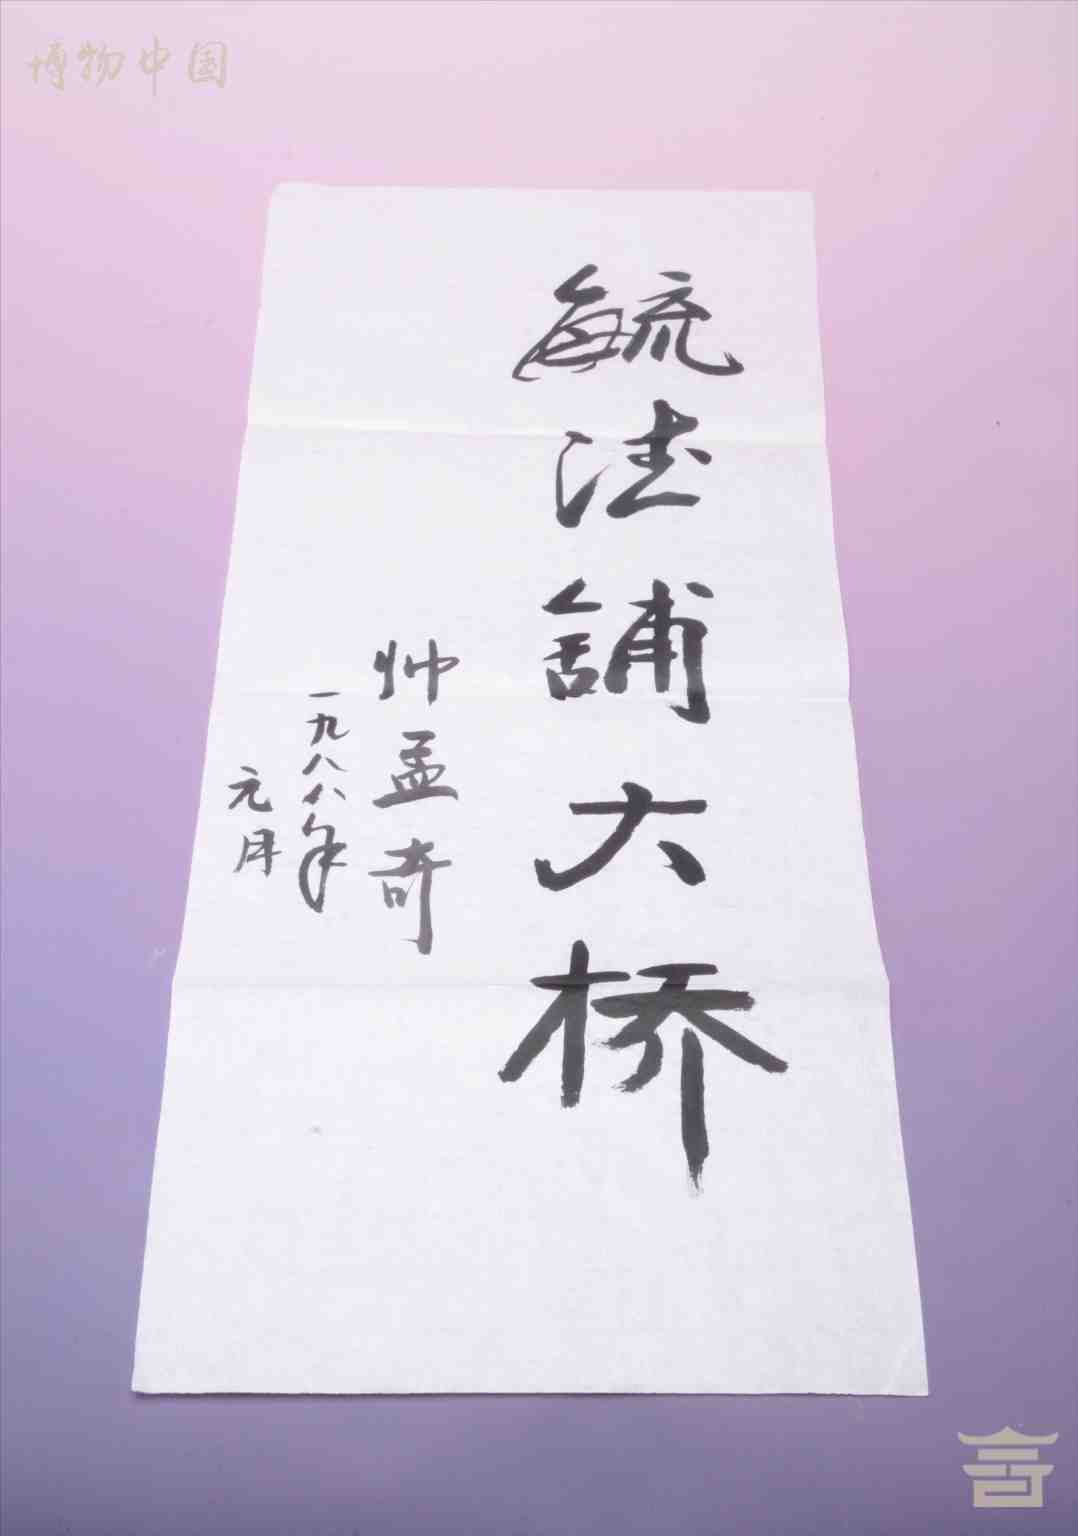 博物中国
毓德舖大桥
帅孟奇
一九八八年
元月